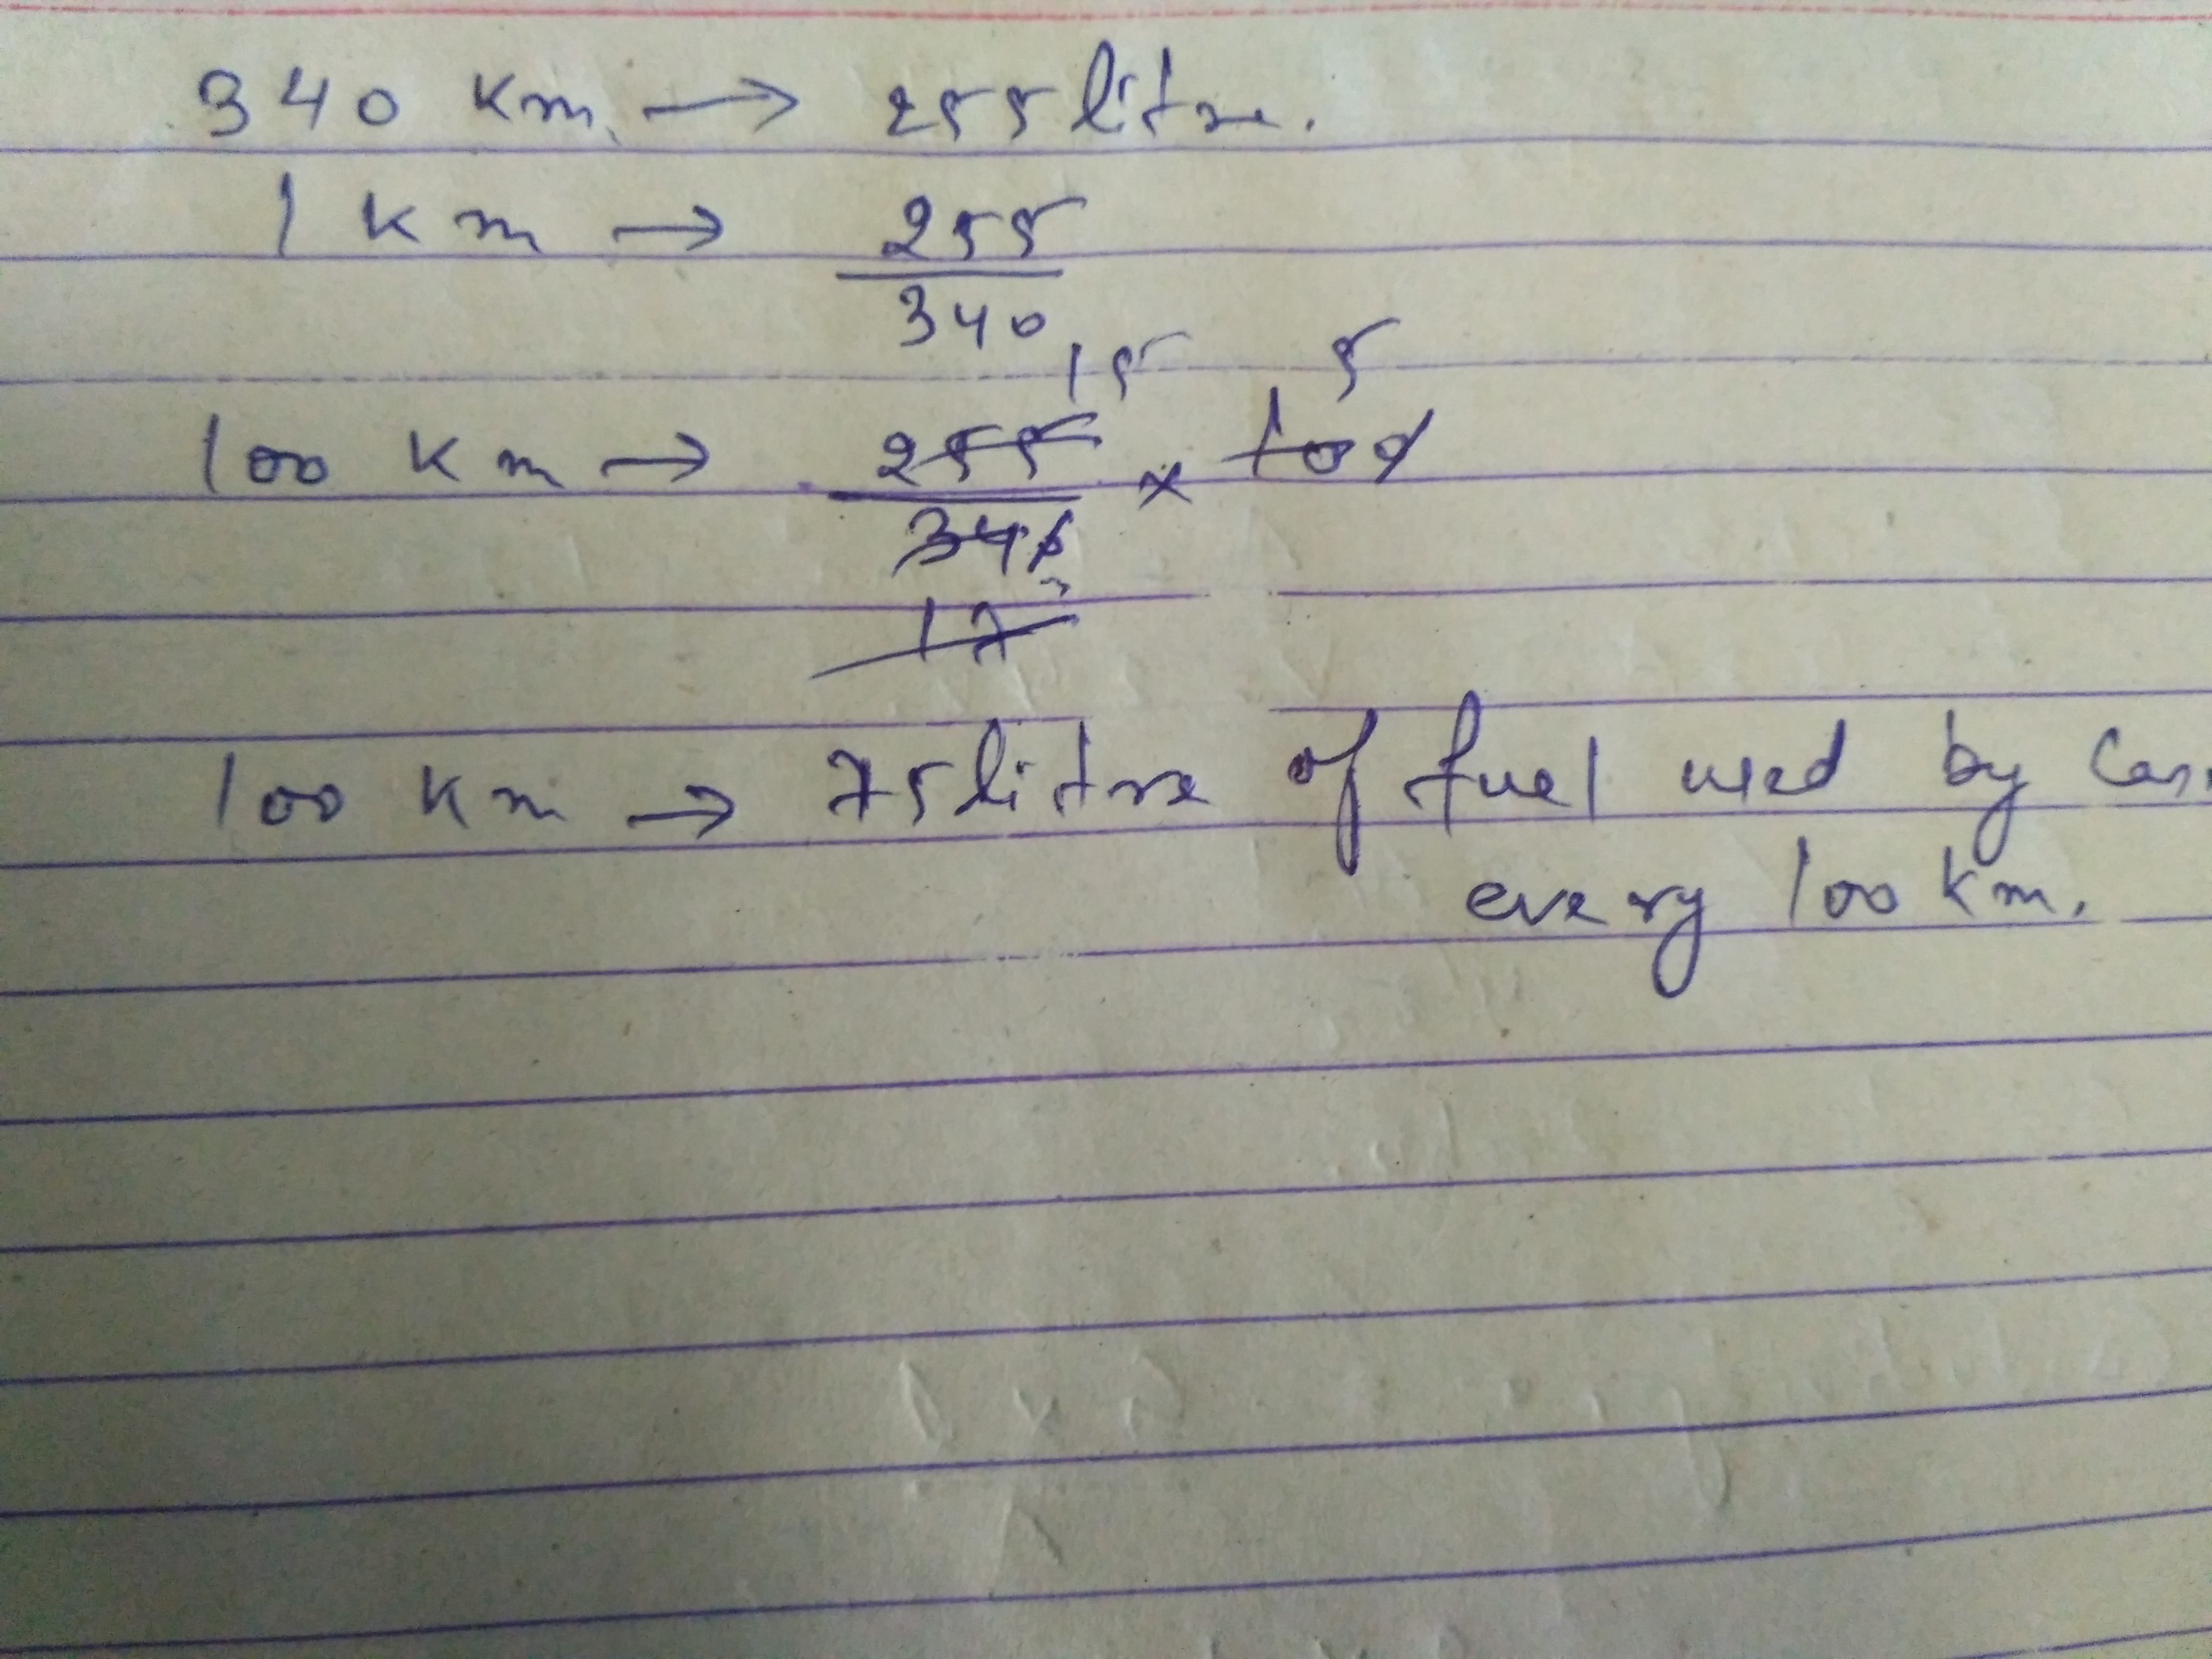 340 Km. → 255 litre.
1 Km → 255
340
15 5
100 Km → 255 × 100
340
17
100 Km → 75 litre of fuel used by Car
every 100 Km.